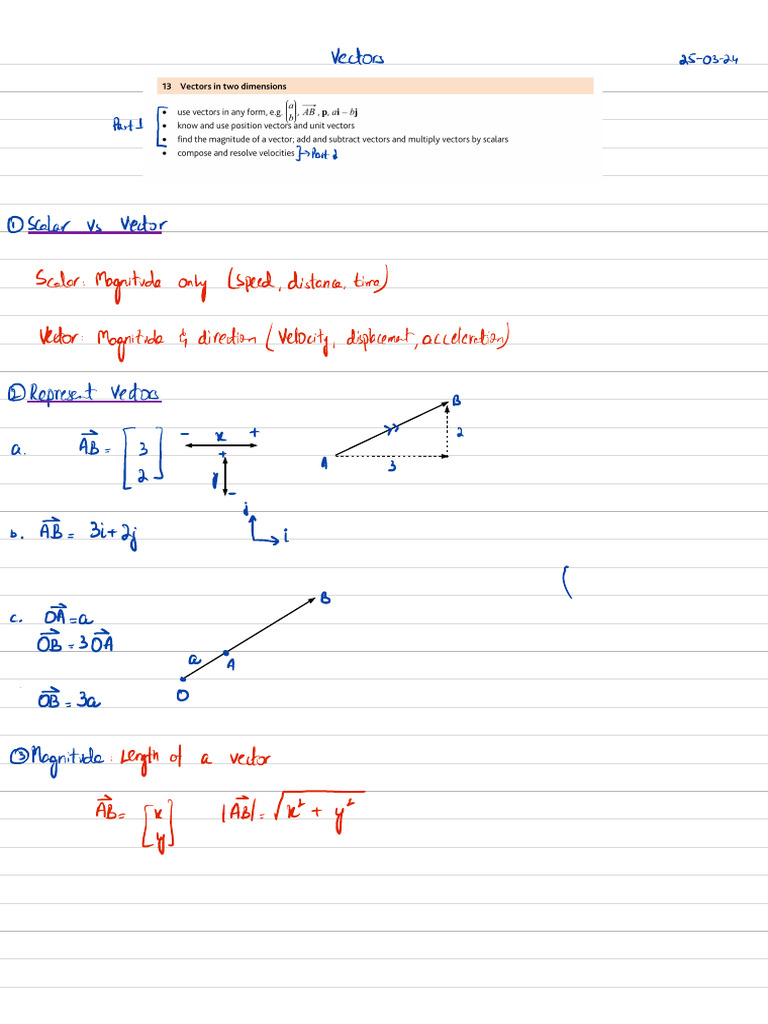 Vectors
25-03-24
13 Vectors in two dimensions
• use vectors in any form, e.g. (a b), AB→, p, ai – bj
• know and use position vectors and unit vectors
• find the magnitude of a vector; add and subtract vectors and multiply vectors by scalars
• compose and resolve velocities
Part 1
→ Part 2
① Scalar vs Vector
Scalar: Magnitude only (speed, distance, time)
Vector: Magnitude & direction (Velocity, displacement, acceleration)
② Represent Vectors
a. AB→ = [3 2]
- x +
+
y
-
A
B
3
2
b. AB→ = 3i + 2j
j
i
(
c. OA→ = a
OB→ = 3OA→
OB→ = 3a
O
a
A
B
③ Magnitude: Length of a vector
AB→ = [x y] |AB→| = √x² + y²